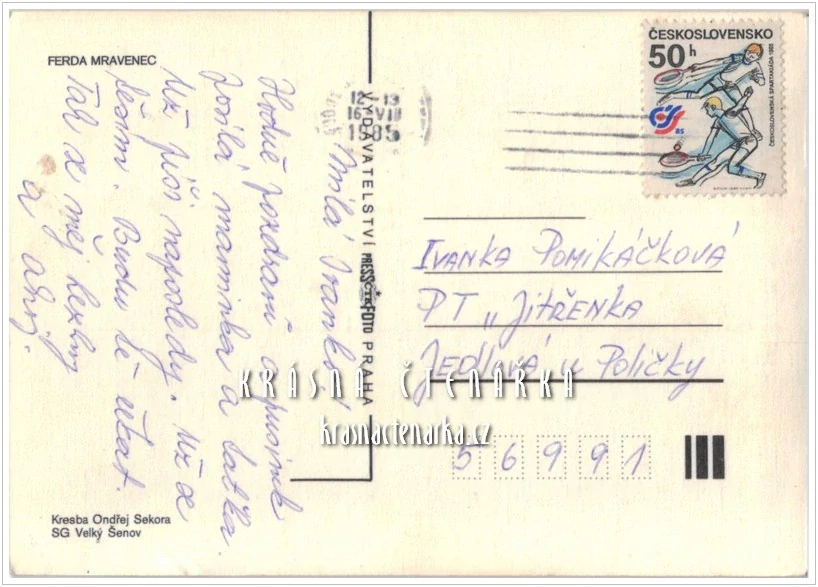 FERDA MRAVENEC
Milá Ivanko!
Hodně pozdravů a pusinek
posílá maminka a taťka.
Už píši naposledy. Už se
těším. Budu tě čekat.
Tak se měj hezky
a ahoj.
Kresba Ondřej Sekora
SG Velký Šenov
VYDAVATELSTVÍ PRESSFOTO PRAHA
12-13
16.VII
1985
ČESKOSLOVENSKO
50h
ČESKOSLOVENSKÁ SPARTAKIÁDA 1985
85
IVANKA POMIKÁČKOVÁ
PT „JITŘENKA
JEDLOVÁ u POLIČKY
56991
KRÁSNÁ ČTENÁRKA
krasnactenarka.cz